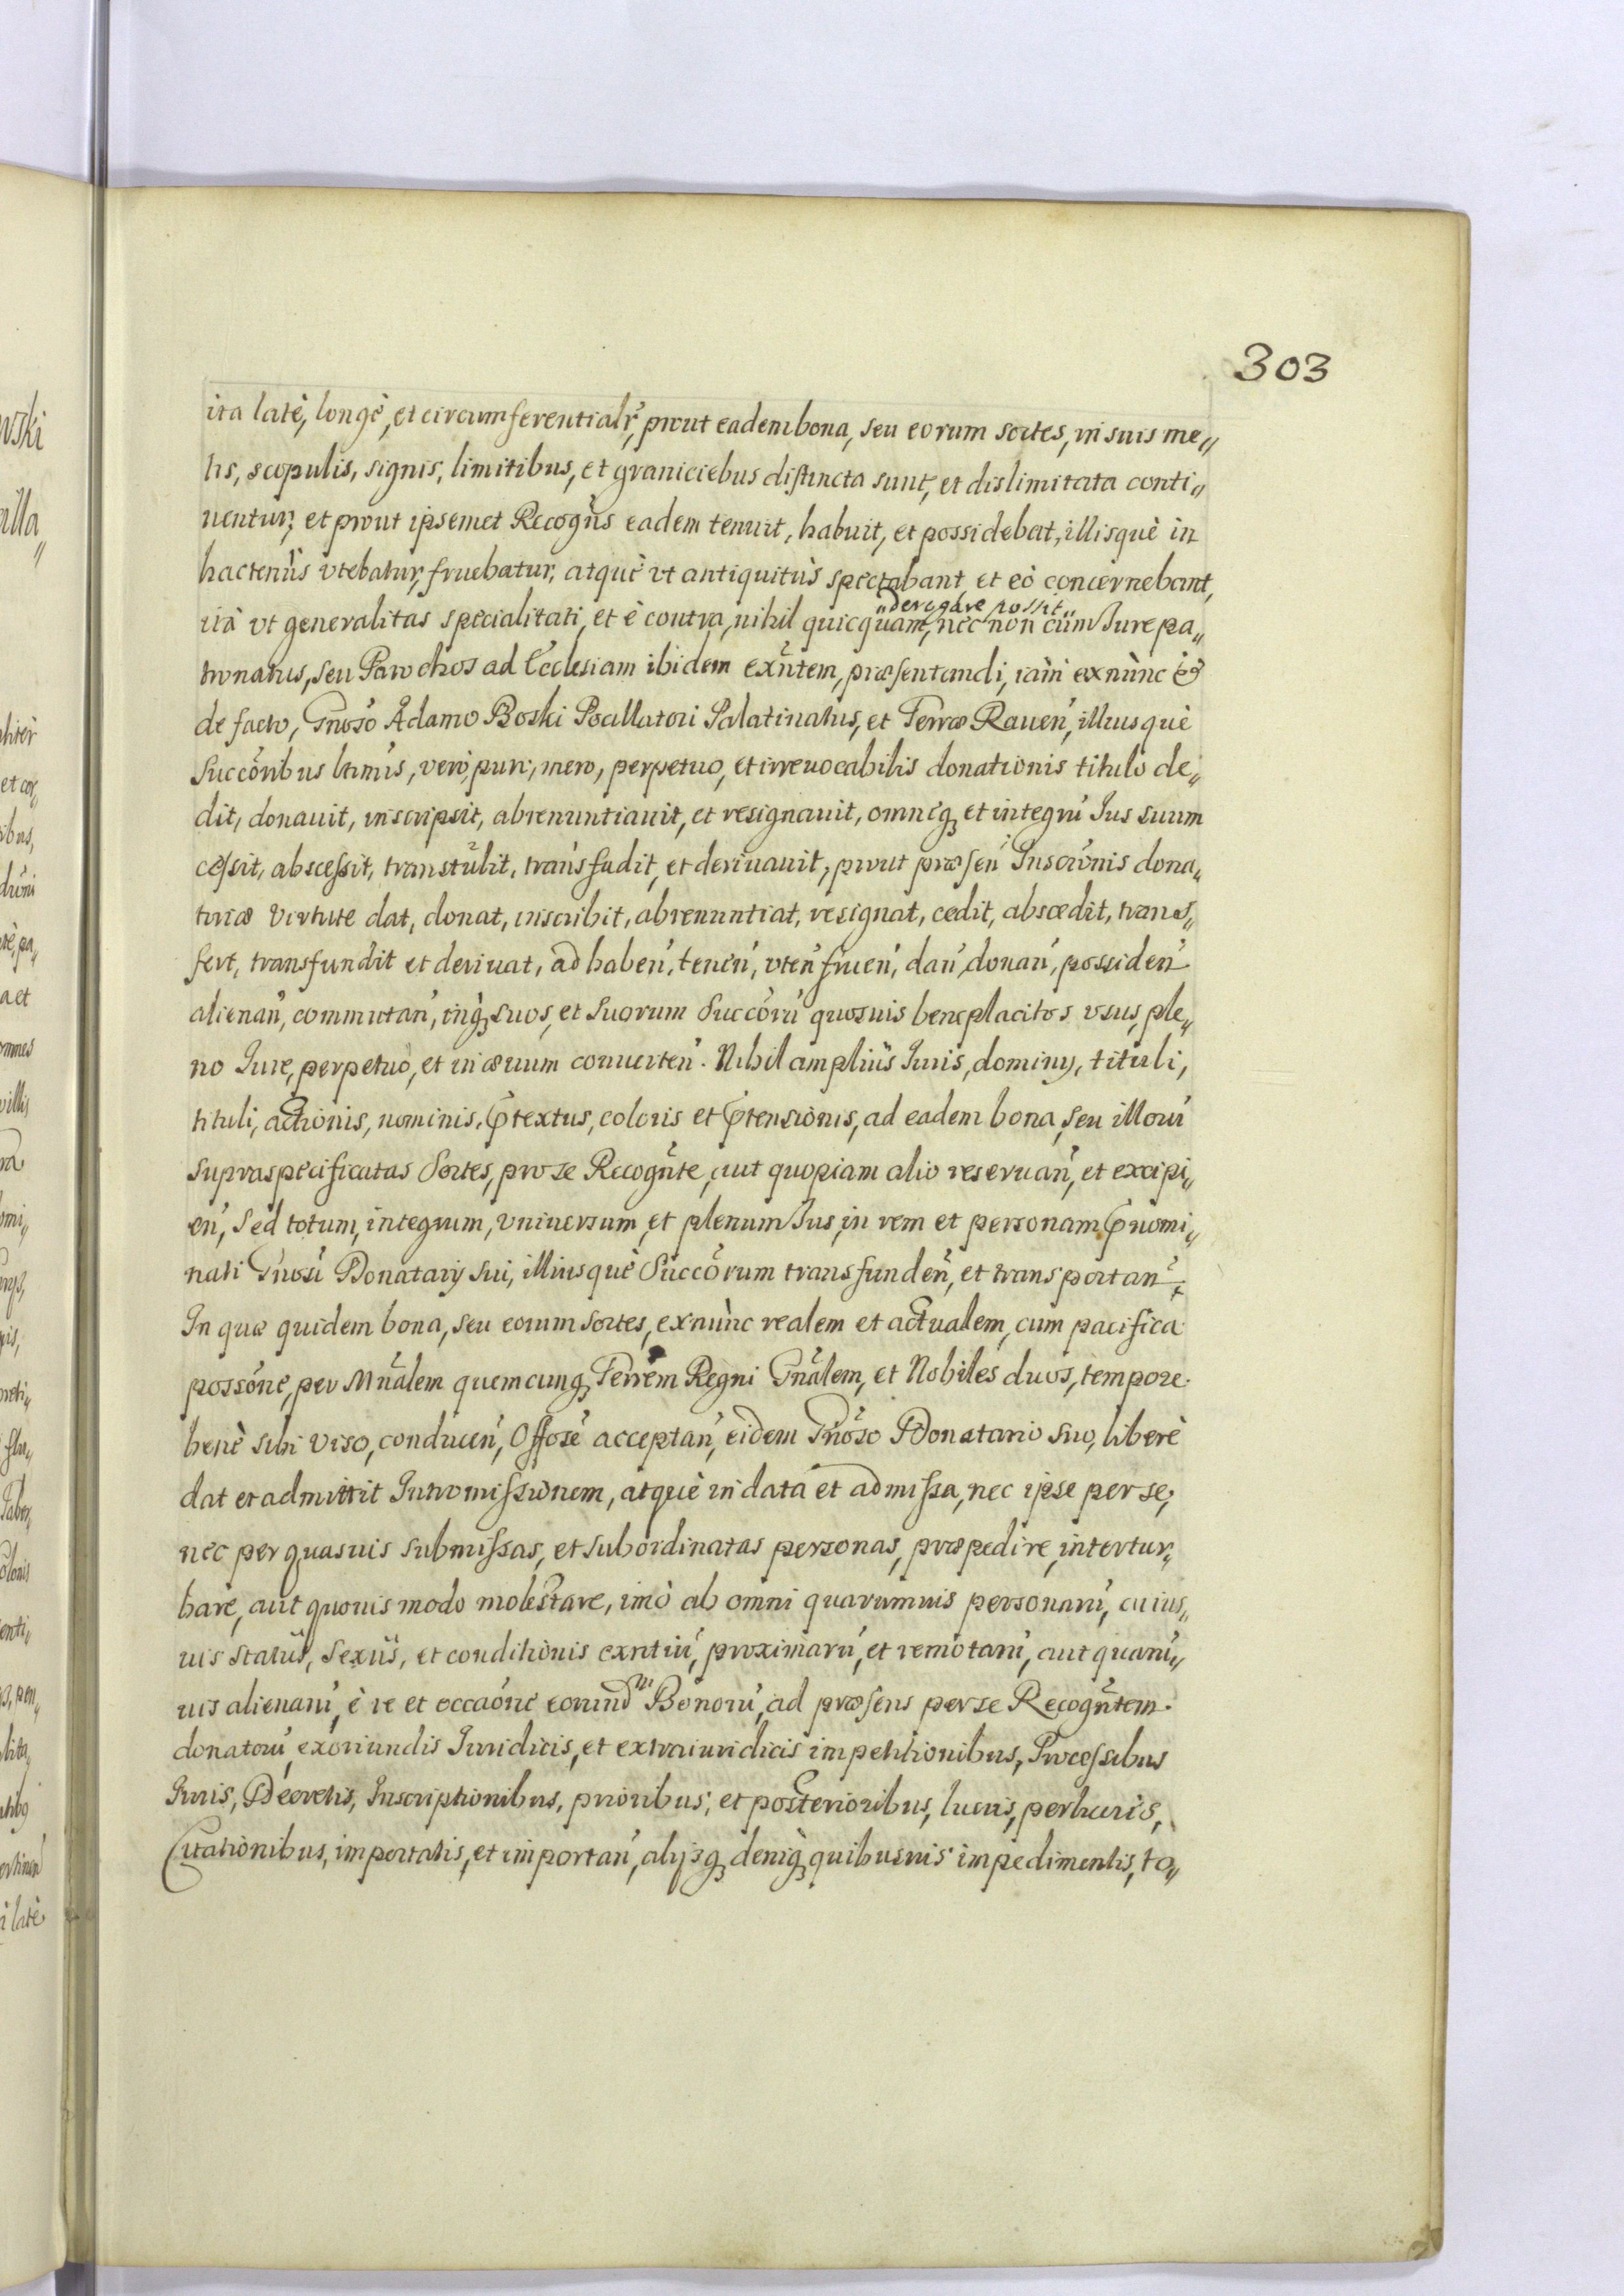 303
ita latè, longè, et circumferentialr̃, prout eadem bona, seu eorum sortes, in suis me„
tis, scopulis, signis, limitibus, et graniciebus distincta sunt, et dislimitata conti„
nentur; et prout ipsemet Recogñs eadem tenuit, habuit, et possidebat, illisquè in
hactenùs vtebatur, fruebatur, atquè vt antiquitùs spectabant et eò concernebant,
„derogare possit„
ità vt generalitas specialitati, et è contra, nihil quicquam, nec non cùm Jure pa„
tronatus, seu Parochos ad Ecclesiam ibidem exñtem, præsentandi, iàm exnùnc et
de facto, Gnoso Adamo Boski Pocillatori Palatinatus, et Terræ Rauen̄, illiusquè
Succōribus ltimis, vero, puri, mero, perpetuo, et irreuocabilis donationis titulo de„
dit, donauit, inscripsit, abrenuntiauit, et resignauit, omneq3 et integrū Jus suum
cessit, abscessit, transtulit, transfudit, et deriuauit, prout præsen̄ Inscrōnis dona„
toriæ virtute dat, donat, inscribit, abrenuntiat, resignat, cedit, abscedit, trans„
fert, transfundit et deriuat, ad haben̄, tenen̄, vten̄ fruen̄, dan̄, donan̄, possiden̄
alienan̄, commutan̄, inq3 suos, et suorum Succōrū quosuis beneplacitos vsus, ple„
no Jure, perpetuò, et in æuum conuerten̄. Nihil ampliùs Juris, dominij, tituli,
tituli, actionis, nominis, p̃textus, coloris et p̃tensionis, ad eadem bona, seu illorū
supraspecificatas Sortes, pro se Recogñte, aut quopiam alio reseruan̄, et excipi„
en̄, Sed totum, integrum, vniuersum, et plenum Jus, in rem et personam p̃nomi„
nati Gnosi Donatarij sui, illiusquè Succōrum transfunden̄, et transportan̄:
In quæ quidem bona, seu eorum sortes, exnùnc realem et actualem, cum pacifica
possōne, per Mñalem quemcunq3 Terrem̃ Regni Gñalem, et Nobiles duos, tempore
benè sibi viso, conducen̄, Offosè acceptan̄, eidem Gnoso Donatario suo, liberè
dat et admittit Intromissionem, atquè in data et admissa, nec ipse per se,
nec per quasuis submissas, et subordinatas personas, præpedire, intertur„
bare, aut quouis modo molestare, imò ab omni quarumuis personarū, cuius„
uis statùs, sexùs, et conditionis exñtiū, proximarū, et remotarū, aut quarū„
uis alienarū, è re et occaōne eorund̃m Bonorū, ad præsens per se Recogñtem
donatorū, exoriundis Juridicis, et extraiuridicis impetitionibus, Processibus
Juris, Decretis, Inscriptionibus, prioribus, et posterioribus, lucris, perlucris,
Citationibus, importatis, et importan̄, alijsq3 deniq3 quibusuis impedimentis, to„